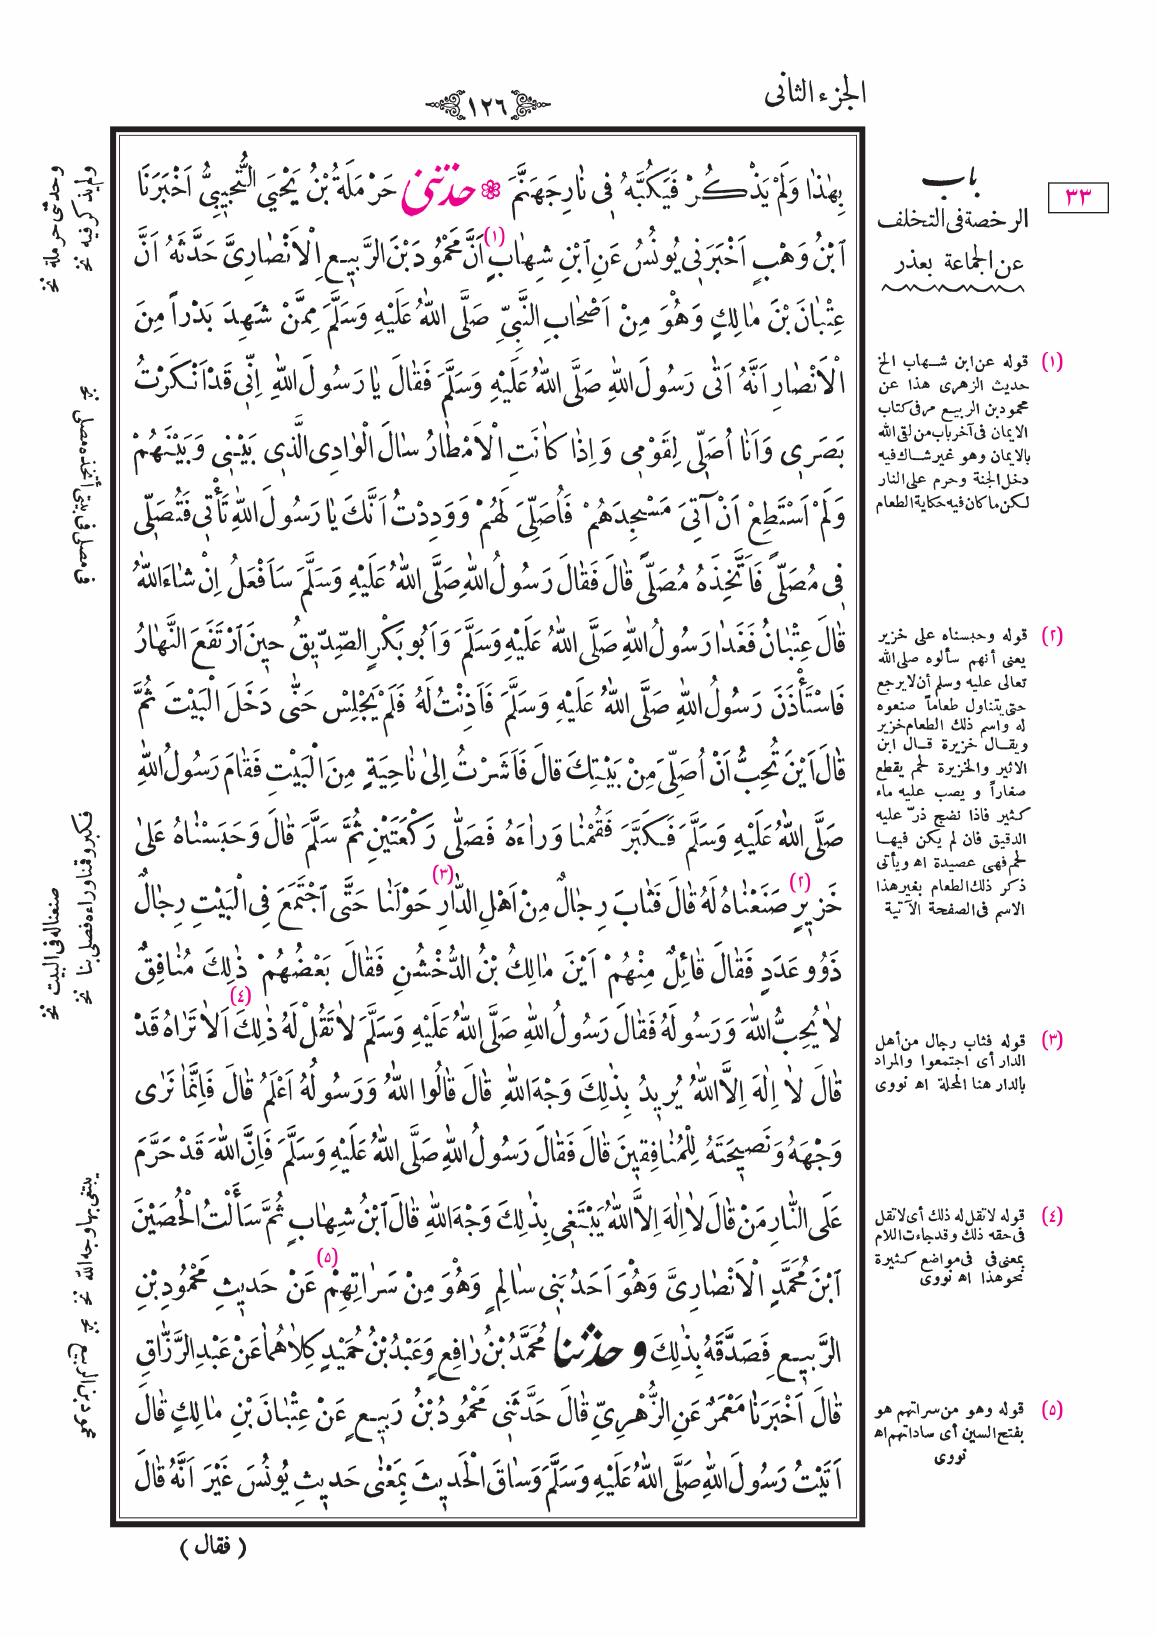 الجزء الثانى
١٢٦
بِهٰذَا وَلَمْ يَذْكُرْ فَيَكُبَّهُ فِى نَارِ جَهَنَّمَ ❁ حدثنى حَرْمَلَةُ بْنُ يَحْيَى التُّجِيبِىُّ اَخْبَرَنَا
ابْنُ وَهْبٍ اَخْبَرَنِى يُونُسُ عَنِ ابْنِ شِهَابٍ (١) اَنَّ مَحْمُودَ بْنَ الرَّبِيعِ الْاَنْصَارِىَّ حَدَّثَهُ اَنَّ
عِتْبَانَ بْنَ مَالِكٍ وَهْوَ مِنْ اَصْحَابِ النَّبِىِّ صَلَّى اللهُ عَلَيْهِ وَسَلَّمَ مِمَّنْ شَهِدَ بَدْراً مِنَ
الْاَنْصَارِ اَنَّهُ اَتٰى رَسُولَ اللهِ صَلَّى اللهُ عَلَيْهِ وَسَلَّمَ فَقَالَ يَا رَسُولَ اللهِ اِنِّى قَدْ اَنْكَرْتُ
بَصَرِى وَاَنَا اُصَلِّى لِقَوْمِى وَاِذَا كَانَتِ الْاَمْطَارُ سَالَ الْوَادِى الَّذِى بَيْنِى وَبَيْنَهُمْ
وَلَمْ اَسْتَطِعْ اَنْ آتِىَ مَسْجِدَهُمْ فَاُصَلِّىَ لَهُمْ وَوَدِدْتُ اَنَّكَ يَا رَسُولَ اللهِ تَأْتِى فَتُصَلِّى
فِى مُصَلًّى فَاَتَّخِذَهُ مُصَلًّى قَالَ فَقَالَ رَسُولُ اللهِ صَلَّى اللهُ عَلَيْهِ وَسَلَّمَ سَاَفْعَلُ اِنْ شَاءَ اللهُ
قَالَ عِتْبَانُ فَغَدَا رَسُولُ اللهِ صَلَّى اللهُ عَلَيْهِ وَسَلَّمَ وَاَبُو بَكْرٍ الصِّدِّيقُ حِينَ ارْتَفَعَ النَّهَارُ
فَاسْتَأْذَنَ رَسُولُ اللهِ صَلَّى اللهُ عَلَيْهِ وَسَلَّمَ فَاَذِنْتُ لَهُ فَلَمْ يَجْلِسْ حَتّٰى دَخَلَ الْبَيْتَ ثُمَّ
قَالَ اَيْنَ تُحِبُّ اَنْ اُصَلِّىَ مِنْ بَيْتِكَ قَالَ فَاَشَرْتُ اِلٰى نَاحِيَةٍ مِنَ الْبَيْتِ فَقَامَ رَسُولُ اللهِ
صَلَّى اللهُ عَلَيْهِ وَسَلَّمَ فَكَبَّرَ فَقُمْنَا وَرَاءَهُ فَصَلّٰى رَكْعَتَيْنِ ثُمَّ سَلَّمَ قَالَ وَحَبَسْنَاهُ عَلٰى
خَزِيرٍ (٢) صَنَعْنَاهُ لَهُ قَالَ فَثَابَ رِجَالٌ مِنْ اَهْلِ الدَّارِ (٣) حَوْلَنَا حَتَّى اجْتَمَعَ فِى الْبَيْتِ رِجَالٌ
ذَوُو عَدَدٍ فَقَالَ قَائِلٌ مِنْهُمْ اَيْنَ مَالِكُ بْنُ الدُّخْشُنِ فَقَالَ بَعْضُهُمْ ذٰلِكَ مُنَافِقٌ
لَا يُحِبُّ اللهَ وَرَسُولَهُ فَقَالَ رَسُولُ اللهِ صَلَّى اللهُ عَلَيْهِ وَسَلَّمَ لَا تَقُلْ لَهُ ذٰلِكَ (٤) اَلَا تَرَاهُ قَدْ
قَالَ لَا اِلٰهَ اِلَّا اللهُ يُرِيدُ بِذٰلِكَ وَجْهَ اللهِ قَالَ قَالُوا اللهُ وَرَسُولُهُ اَعْلَمُ قَالَ فَاِنَّمَا نَرٰى
وَجْهَهُ وَنَصِيحَتَهُ لِلْمُنَافِقِينَ قَالَ فَقَالَ رَسُولُ اللهِ صَلَّى اللهُ عَلَيْهِ وَسَلَّمَ فَاِنَّ اللهَ قَدْ حَرَّمَ
عَلَى النَّارِ مَنْ قَالَ لَا اِلٰهَ اِلَّا اللهُ يَبْتَغِى بِذٰلِكَ وَجْهَ اللهِ قَالَ ابْنُ شِهَابٍ ثُمَّ سَأَلْتُ الْحُصَيْنَ
ابْنَ مُحَمَّدٍ الْاَنْصَارِىَّ وَهْوَ اَحَدُ بَنِى سَالِمٍ وَهْوَ مِنْ سَرَاتِهِمْ (٥) عَنْ حَدِيثِ مَحْمُودِ بْنِ
الرَّبِيعِ فَصَدَّقَهُ بِذٰلِكَ و حدثنا مُحَمَّدُ بْنُ رَافِعٍ وَعَبْدُ بْنُ حُمَيْدٍ كِلَاهُمَا عَنْ عَبْدِ الرَّزَّاقِ
قَالَ اَخْبَرَنَا مَعْمَرٌ عَنِ الزُّهْرِىِّ قَالَ حَدَّثَنِى مَحْمُودُ بْنُ رَبِيعٍ عَنْ عِتْبَانَ بْنِ مَالِكٍ قَالَ
اَتَيْتُ رَسُولَ اللهِ صَلَّى اللهُ عَلَيْهِ وَسَلَّمَ وَسَاقَ الْحَدِيثَ بِمَعْنٰى حَدِيثِ يُونُسَ غَيْرَ اَنَّهُ قَالَ
( فقال )
٣٣
باب
الرخصة فى التخلف
عن الجماعة بعذر
(١) قوله عن ابن شهاب الخ
حديث الزهرى هذا عن
محمود بن الربيع مر فى كتاب
الايمان فى آخر باب من لقى الله
بالايمان وهو غير شاك فيه
دخل الجنة وحرم على النار
لكن ما كان فيه حكاية الطعام
(٢) قوله وحبسناه على خزير
يعنى أنهم سألوه صلى الله
تعالى عليه وسلم أن لا يرجع
حتى يتناول طعاماً صنعوه
له واسم ذلك الطعام خزير
ويقال خزيرة قال ابن
الاثير والخزيرة لحم يقطع
صغاراً و يصب عليه ماء
كثير فاذا نضج ذرّ عليه
الدقيق فان لم يكن فيها
لحم فهى عصيدة اه ويأتى
ذكر ذلك الطعام بغير هذا
الاسم فى الصفحة الآتية
(٣) قوله فثاب رجال من أهل
الدار أى اجتمعوا والمراد
بالدار هنا المحلة اه نووى
(٤) قوله لا تقل له ذلك أى لا تقل
فى حقه ذلك وقد جاءت اللام
بمعنى فى فى مواضع كثيرة
نحو هذا اه نووى
(٥) قوله وهو من سراتهم هو
بفتح السين أى ساداتهم اه
نووى
ولم يذكر فيه نخ
وحدثنى حرملة نخ
فى مصلى فى بيتى أتخذه مصلى نخ
فكبر وقمنا وراءه فصلى بنا نخ
صنعناه له فى البيت نخ
يبتغى بها وجه الله نخ
محمود بن الربيع نخ